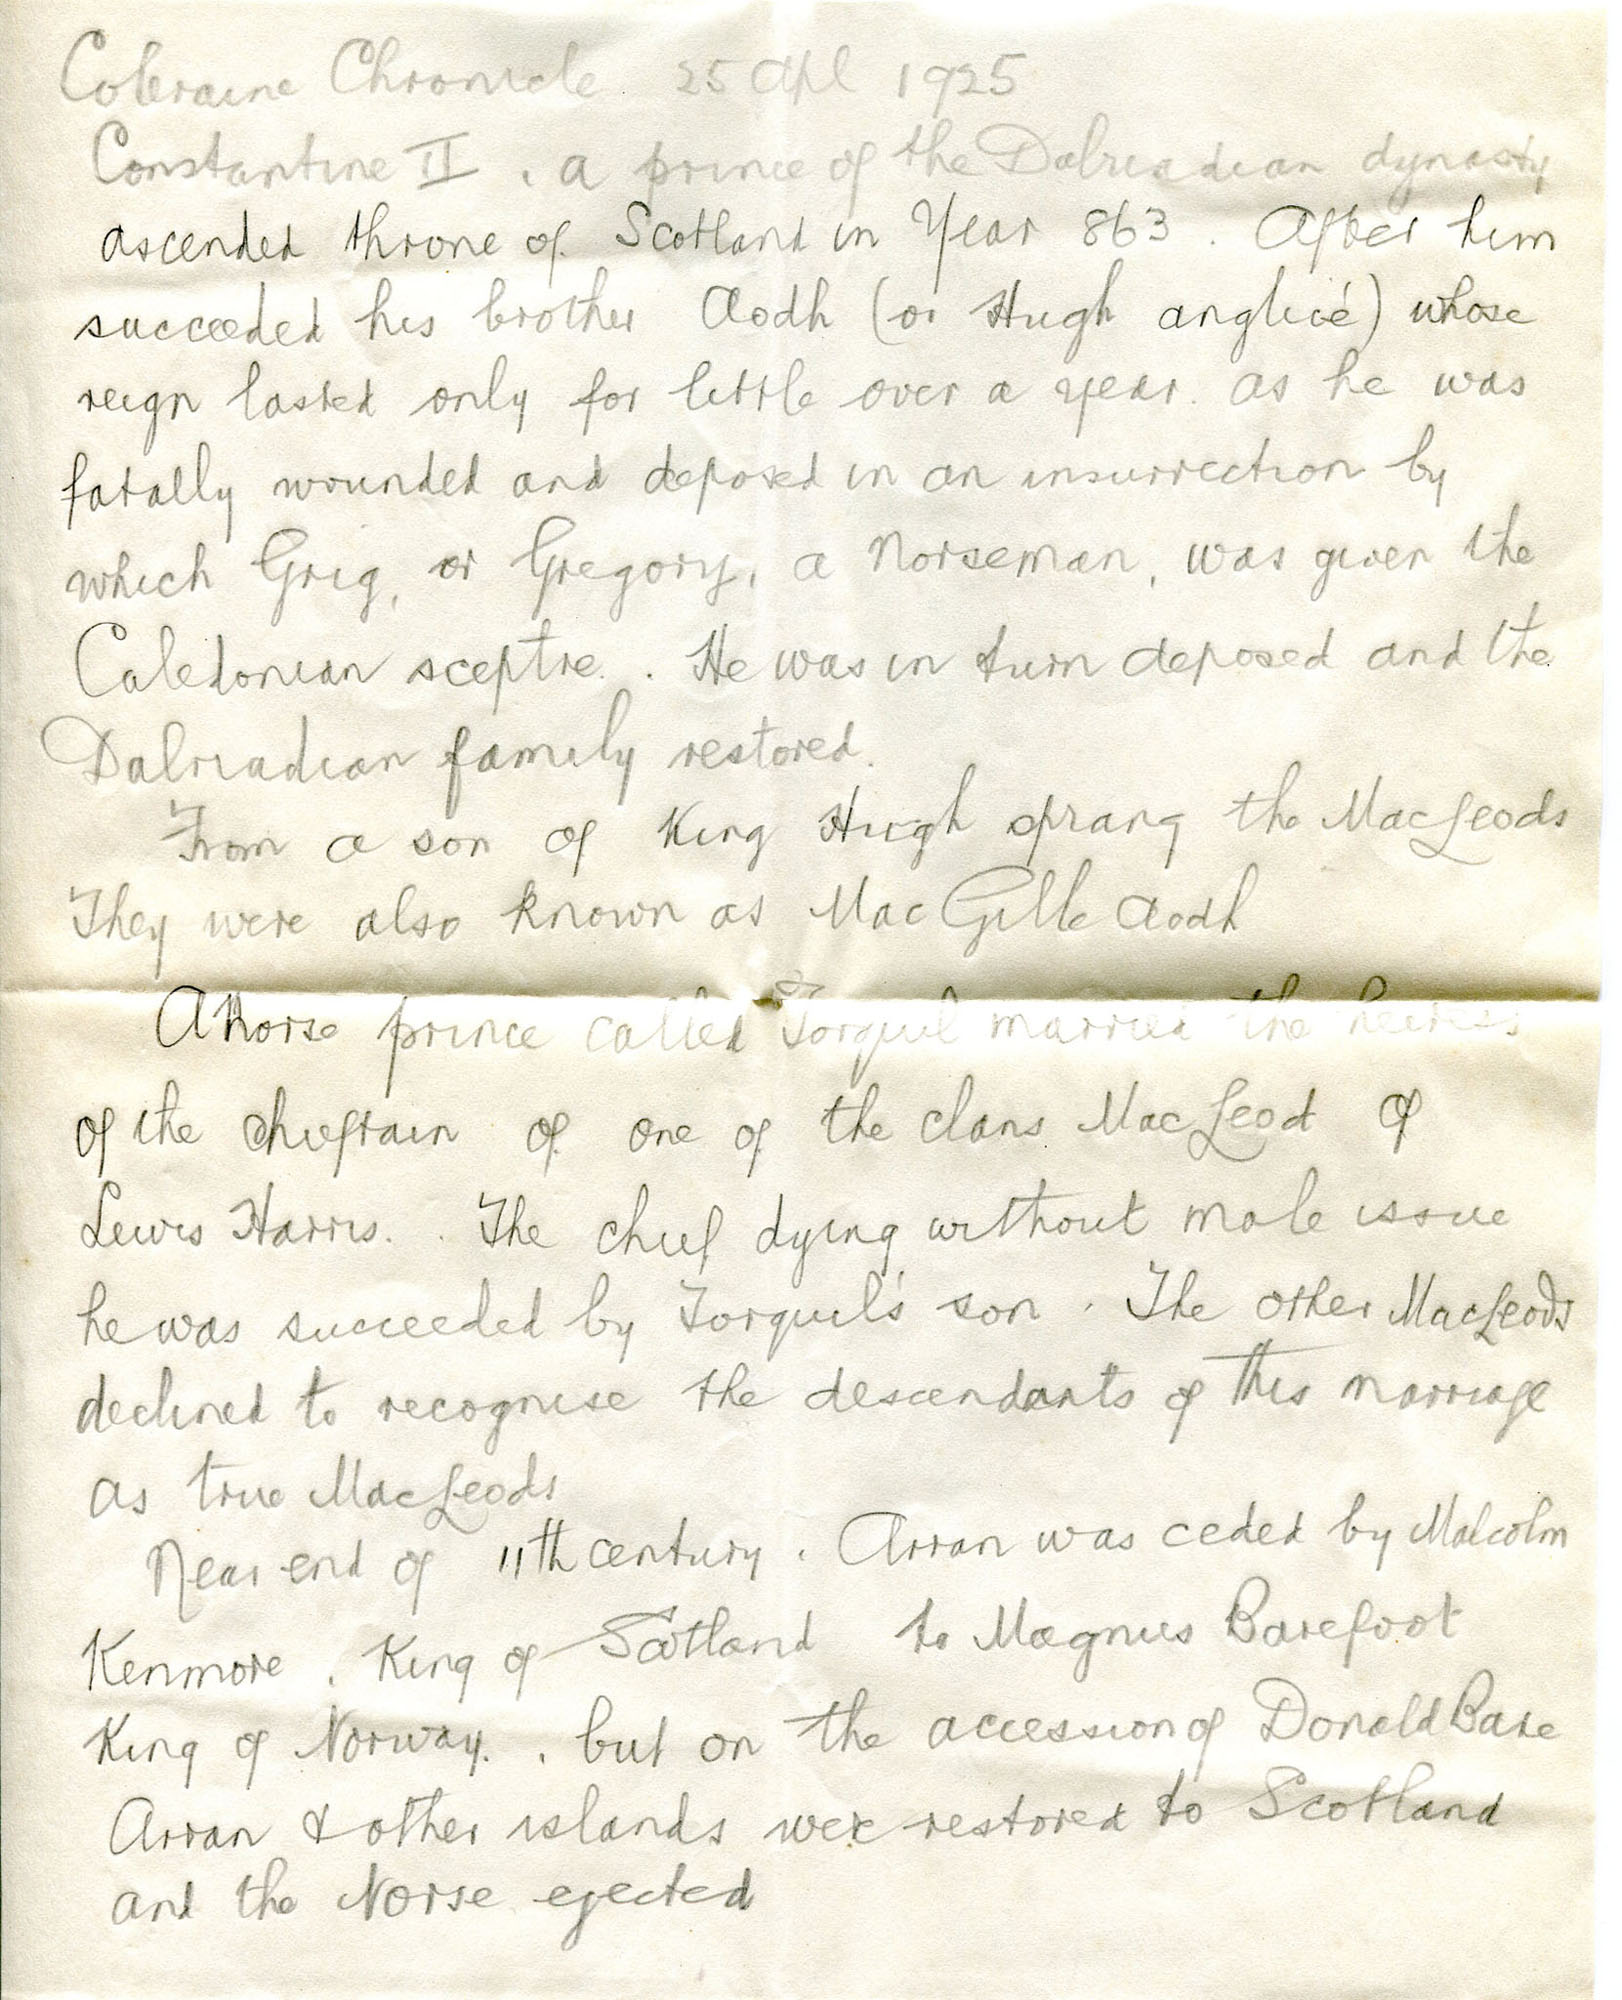 Coleraine Chronicle 25 Apl 1925
Constantine II, a prince of the Dalriadian dynasty
ascended throne of Scotland in Year 863. After him
succeeded his brother Aodh (or Hugh anglicé) whose
reign lasted only for little over a year as he was
fatally wounded and deposed in an insurrection by
which Grig, or Gregory, a Norseman, was given the
Caledonian sceptre. He was in turn deposed and the
Dalriadian family restored.
From a son of King Hugh sprang the MacLeods
They were also known as Mac Gille Aodh
A Norse prince called Torquil married the heiress
of the chieftain of one of the clans MacLeod of
Lewis Harris. The chief dying without male issue
he was succeeded by Torquil's son. The other MacLeods
declined to recognise the descendants of this marriage
as true MacLeods
Near end of 11th century. Arran was ceded by Malcolm
Kenmore, King of Scotland to Magnus Barefoot
King of Norway, but on the accession of Donald Bane
Arran & other islands were restored to Scotland
and the Norse ejected